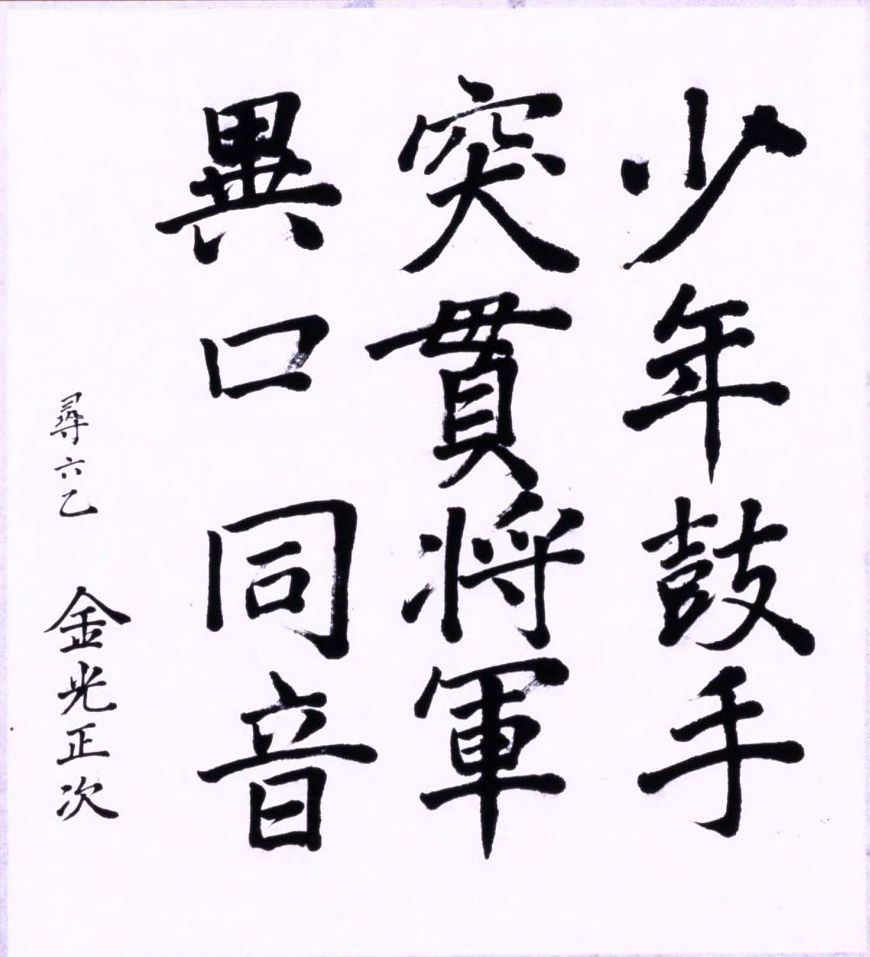 少年鼓手
突貫将軍
異口同音
尋六乙 金光正次